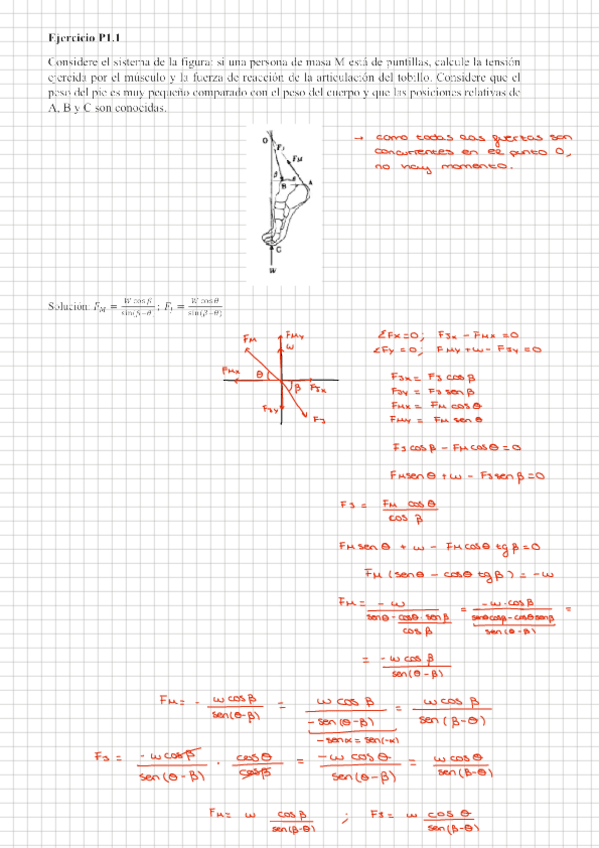 Ejercicio P1.1
Considere el sistema de la figura: si una persona de masa M está de puntillas, calcule la tensión
ejercida por el músculo y la fuerza de reacción de la articulación del tobillo. Considere que el
peso del pie es muy pequeño comparado con el peso del cuerpo y que las posiciones relativas de
A, B y C son conocidas.
→ como todas las fuerzas son
concurrentes en el punto O,
no hay momento.
O
FJ
FM
β
θ
B
A
C
W
Solución: F_M = W cos β / sin(β−θ) ; F_J = W cos θ / sin(β−θ)
FM
FMy
W
FMx
θ
β
FJx
FJy
FJ
ΣFx=0; FJx − FMx = 0
ΣFy=0; FMy + w − FJy = 0
FJx = FJ cos β
FJy = FJ sen β
FMx = FM cos θ
FMy = FM sen θ
FJ cos β − FM cos θ = 0
FM sen θ + w − FJ sen β = 0
FJ = FM cos θ / cos β
FM sen θ + w − FM cos θ tg β = 0
FM (sen θ − cos θ tg β) = −w
FM = −w / (sen θ − cos θ · sen β / cos β) = −w · cos β / (sen θ cos β − cos θ sen β) =
sen(θ−β)
= −w cos β / sen(θ−β)
FM = − w cos β / sen(θ−β) = w cos β / −sen(θ−β) = w cos β / sen(β−θ)
−sen α = sen(−α)
FJ = −w cos β / sen(θ−β) · cos θ / cos β = −w cos θ / sen(θ−β) = w cos θ / sen(β−θ)
FM = w cos β / sen(β−θ) ; FJ = w cos θ / sen(β−θ)